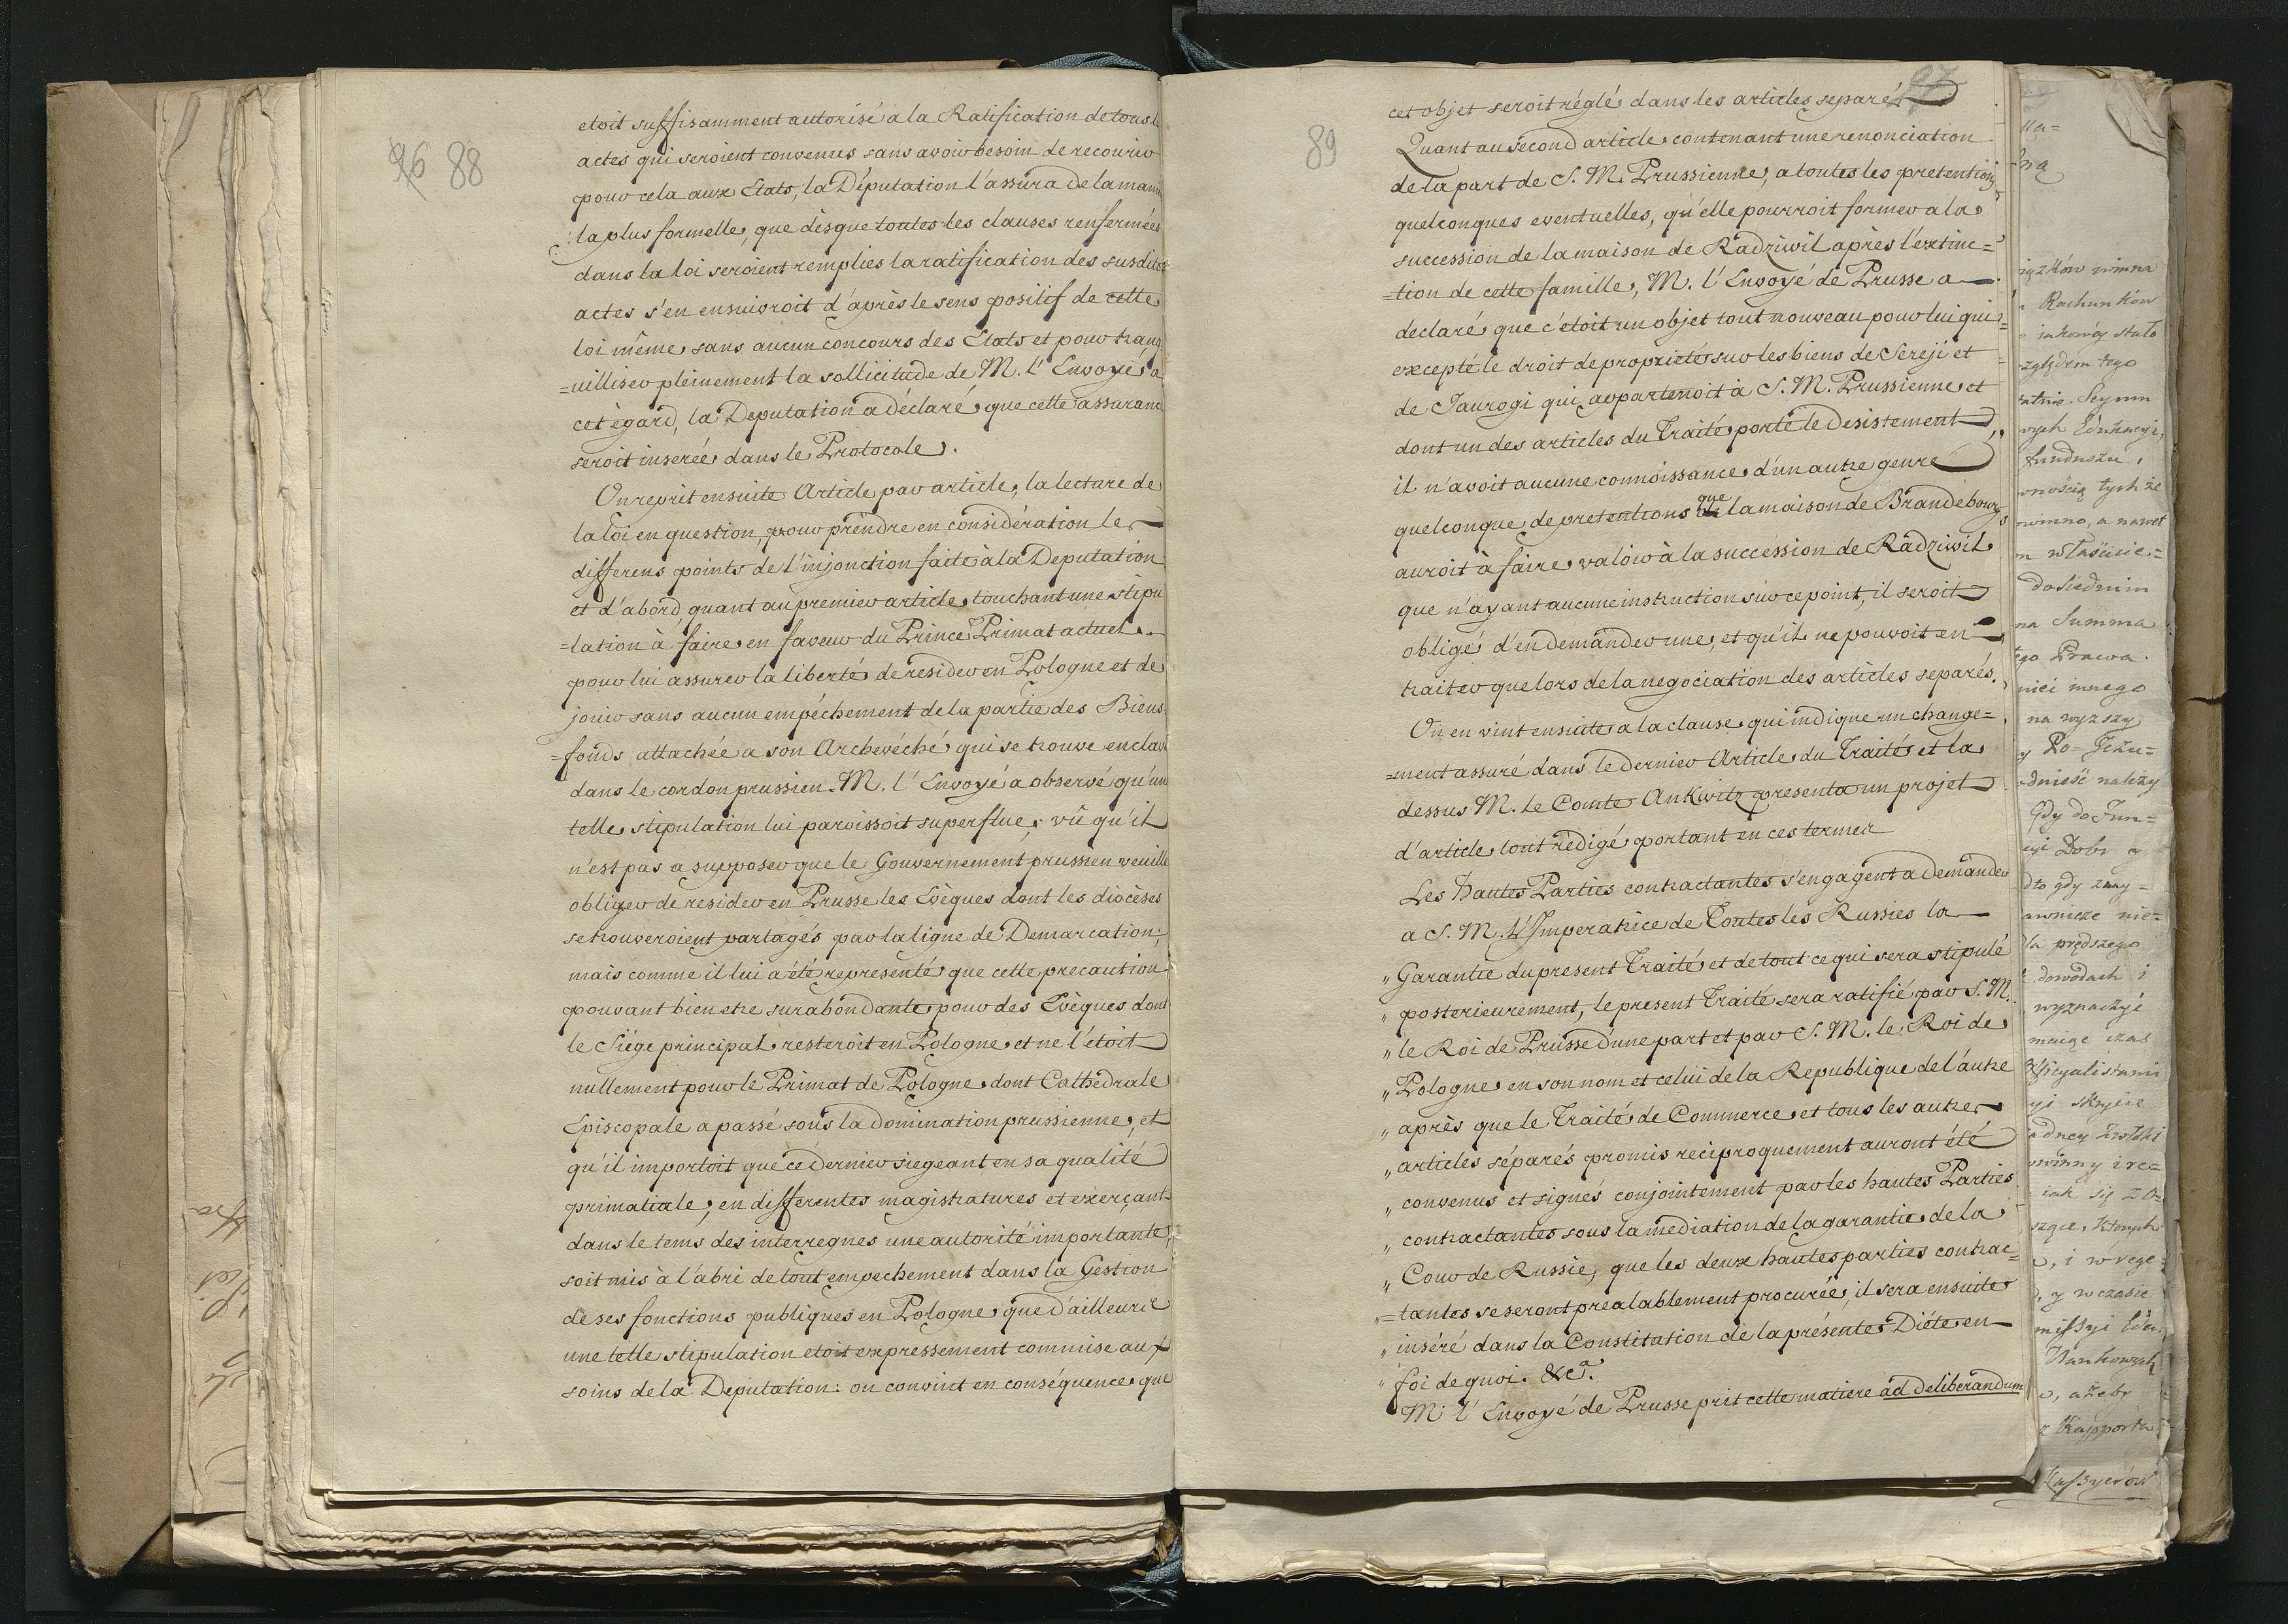 96 88
etoit suffisamment autorisé a la Ratification de tous
actes qui seroient convenus sans avoir besoin de recourir
pour cela aux Etats, la Députation l'assura de la
la plus formelle, que dès que toutes les clauses renfermées
dans la loi seroient remplies la ratification des susdites
actes s'en ensuivroit d'après le sens positif de cette
loi même, sans aucun concours des Etats et pour tranq
=uilliser pleinement la sollicitude de M. l'Envoyé, a
cet égard, la Deputation a déclaré, que cette assurance
seroit inserée dans le Protocole.
On reprit ensuite Article par article, la lecture de
la loi en question, pour prendre en considération le
differens points de l'injonction faite à la Deputation
et d'abord, quant au premier article, touchant une stipu
=lation à faire, en faveur du Prince Primat actuel
pour lui assurer la liberté de resider en Pologne et de
jouir sans aucun empéchement de la partie des Biens
=fonds attachée a son Archevéché, qui se trouve enclav
dans le cordon prussien. M. l'Envoyé a observé qu'un
telle stipulation lui paroissoit superflue, vû qu'il
n'est pas a supposer que le Gouvernement prussien veuille
obliger de resider en Prusse les Evèques dont les diocèses
se trouveroient partagés par la ligne de Demarcation;
mais comme il lui a été representé que cette precaution
pouvant bien etre surabondante pour des Evèques dont
le Siége principal resteroit en Pologne, et ne l'étoit
nullement pour le Primat de Pologne, dont Cathedrale
Episcopale a passé sous la domination prussienne, et
qu'il importoit que ce dernier siegeant en sa qualité
primatiale, en differentes magistratures et exerçant
dans le tems des interregnes une autorité importante,
soit mis à l'abri de tout empechement dans la Gestion
de ses fonctions publiques en Pologne, que d'ailleurs
une telle stipulation etoit expressement commise aux
soins de la Deputation: on convint en conséquence, que
97
89
cet objet seroit réglé dans les articles separés
Quant au second article contenant une renonciation
de la part de S. M. Prussienne, a toutes les pretentions
quelconques eventuelles, qu'elle pourroit former a la
succession de la maison de Radziwil après l'extinc=
=tion de cette famille, M. l'Envoyé de Prusse a
declaré que c'étoit un objet tout nouveau pour lui qui
excepté le droit de proprieté sur les biens de Sereji et
de Taurogi qui appartenoit à S. M. Prussienne et
dont un des articles du Traité porte le desistement,
il n'avoit aucune connoissance d'un autre genre
quelconque de pretentions que la maison de Brandebourg
auroit à faire valoir à la succession de Radziwil
que n'ayant aucune instruction sur ce point, il seroit
obligé d'en demander une, et qu'il ne pouvoit en
traiter que lors de la negociation des articles separés.
On en vint ensuite a la clause, qui indique un change=
=ment assuré dans le dernier Article du Traité et la
dessus M. le Comte Ankwitz presenta un projet
d'article tout redigé portant en ces termes
Les hautes Parties contractantes s'engagent a demander
a S. M. L'Imperatrice de Toutes les Russies la
„ Garantie du present Traité et de tout ce qui sera stipulé
„ posterieurement, le present Traité sera ratifié par S. M.
„ le Roi de Prusse d'une part et par S. M. le Roi de
„ Pologne en son nom et celui de la Republique de l'autre
„ après que le Traité de Commerce, et tous les autres
„ articles séparés promis reciproquement auront été
„ convenus et signés conjointement par les hautes Parties
„ contractantes sous la mediation de la garantie de la
„ Cour de Russie, que les deux hautes parties contrac=
„ =tantes se seront prealablement procurée, il sera ensuite
„ inséré dans la Constitution de la présente Diéte en
„ foi de quoi. &c.ª
M. l'Envoyé de Prusse prit cette matiere ad deliberandum
Rachunków
jakowey stało
względem tego
Seymu
Edukacyi,
funduszu,
tychże
powinno, a nawet
Summa
tego Prawa.
innego
na wyższy
należy
Gdy do Fun=
Dobr y
gdy
prędszego
dowodach i
wyznaczyć
czas
się
których
y w czasie
ażeby
Rapporta